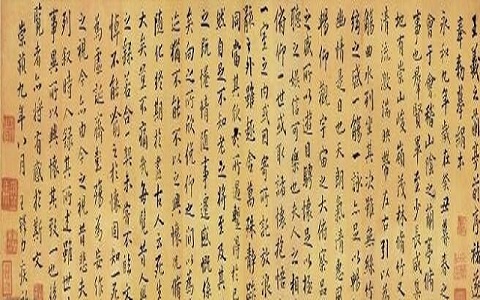 永和九年歲在癸丑暮春之
會于會稽山陰之蘭亭脩
事也羣賢畢至少長咸集
地有崇山峻嶺茂林脩竹又
清流激湍映帶左右引以為
觴曲水列坐其次雖無絲竹
絃之盛一觴一詠亦足以暢
幽情是日也天朗氣清惠風
暢仰觀宇宙之大俯察品
之盛所以遊目騁懷足以極
聽之娛信可樂也夫人之相
俯仰一世或取諸懷抱悟
一室之內或因寄所託放浪
形骸之外雖趣舍萬殊靜躁
同當其欣於所遇暫得於己
然自足不知老之將至及其
之既惓情隨事遷感慨係
矣向之所欣俛仰之間以為
迹猶不能不以之興懷況脩
隨化終期於盡古人云死生
大矣豈不痛哉每覽昔人興
之由若合一契未嘗不臨文
悼不能喻之於懷固知一死
為虛誕齊彭殤為妄作
之視今亦由今之視昔悲夫
列敘時人錄其所述雖世
事異所以興懷其致一也後
覽者亦將有感於斯文
崇禎九年八月